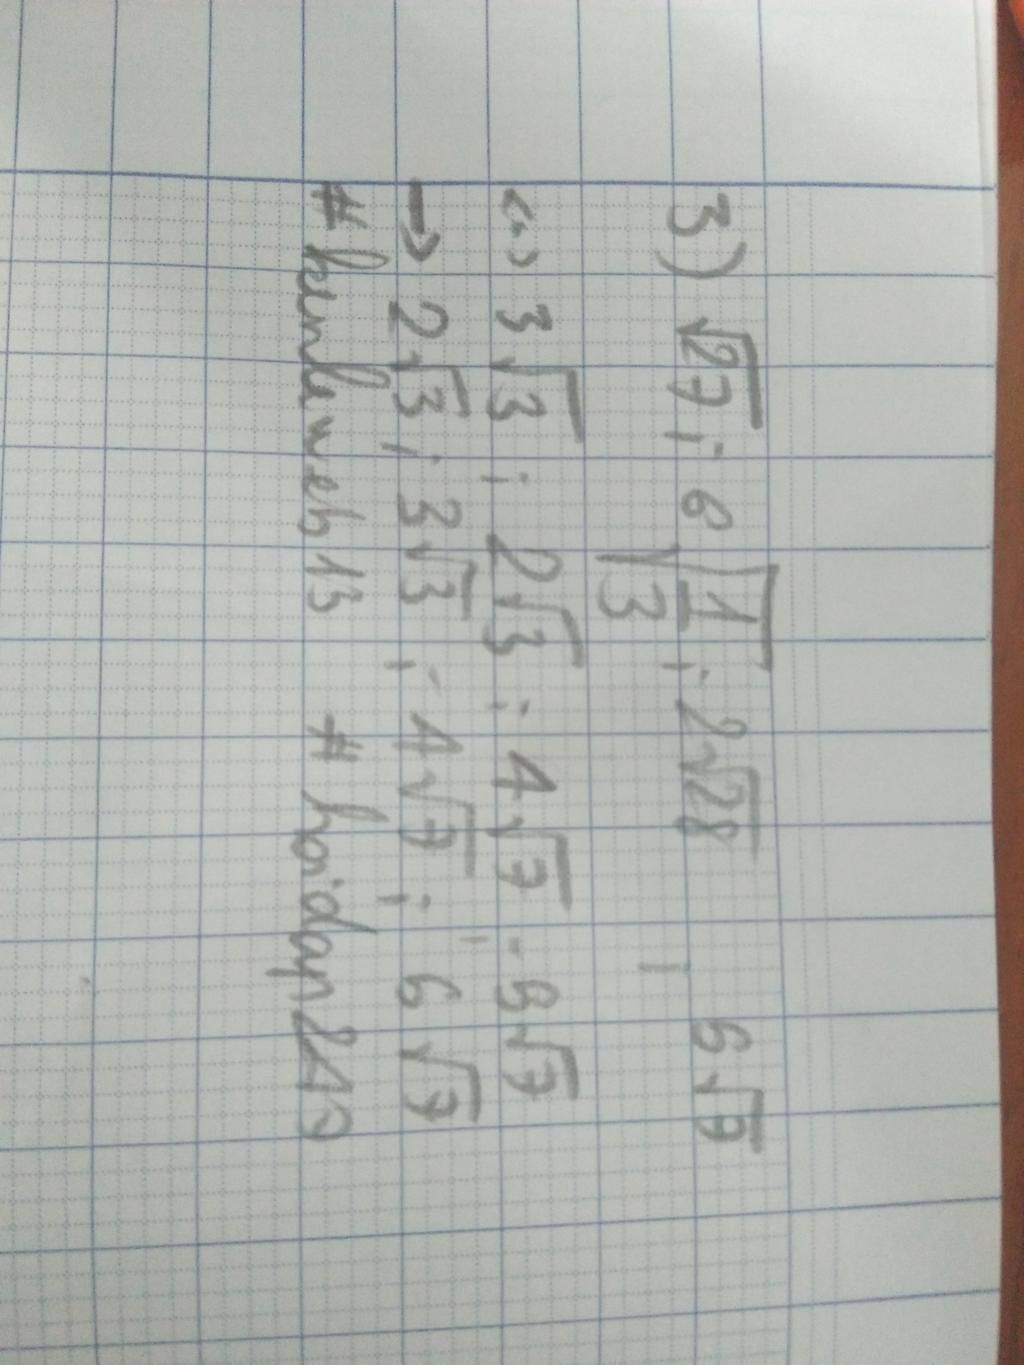 3) √27 ; 6√(1/3) ; 2√28 ; 6√7
<=> 3√3 ; 2√3 ; 4√7 ; 6√7
→ 2√3 ; 3√3 ; 4√7 ; 6√7
# kenlinweb13 # hoidap247